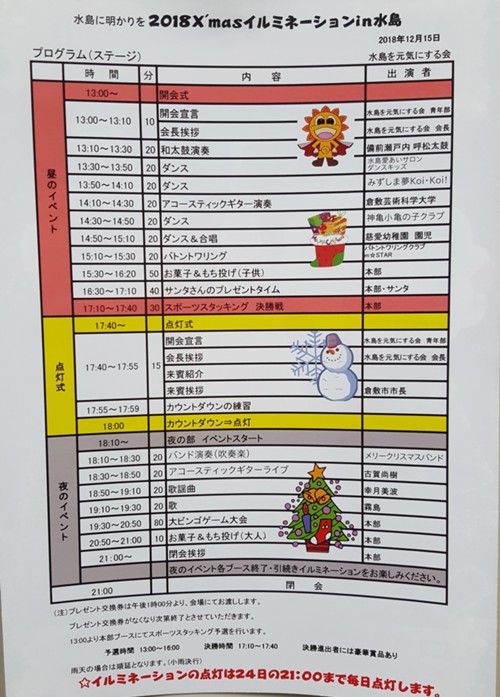 水島に明かりを 2018X'masイルミネーションin水島
2018年12月15日
プログラム(ステージ) 水島を元気にする会
時 間 分 内 容 出 演 者
昼のイベント
13:00～ 開会式
13:00～13:10 10 開会宣言 水島を元気にする会 青年部
会長挨拶 水島を元気にする会 会長
13:10～13:30 20 和太鼓演奏 備前瀬戸内 呼松太鼓
13:30～13:50 20 ダンス 水島愛あいサロン ダンスキッズ
13:50～14:10 20 ダンス みずしま夢Koi・Koi!
14:10～14:30 20 アコースティックギター演奏 倉敷芸術科学大学
14:30～14:50 20 ダンス 神亀小亀の子クラブ
14:50～15:10 20 ダンス＆合唱 慈愛幼稚園 園児
15:10～15:30 20 バトントワリング バトントワリングクラブ m☆STAR
15:30～16:20 50 お菓子＆もち投げ(子供) 本部
16:30～17:10 40 サンタさんのプレゼントタイム 本部・サンタ
17:10～17:40 30 スポーツスタッキング 決勝戦 本部
点灯式
17:40～ 点灯式
17:40～17:55 15 開会宣言 水島を元気にする会 青年部
会長挨拶 水島を元気にする会 会長
来賓紹介
来賓挨拶 倉敷市市長
17:55～17:59 カウントダウンの練習
18:00 カウントダウン⇒点灯
夜のイベント
18:10～ 夜の部 イベントスタート
18:10～18:30 20 バンド演奏(吹奏楽) メリークリスマスバンド
18:30～18:50 20 アコースティックギターライブ 古賀尚樹
18:50～19:10 20 歌謡曲 幸月美波
19:10～19:30 20 歌 霧島
19:30～20:50 80 大ビンゴゲーム大会 本部
20:50～21:00 10 お菓子＆もち投げ(大人) 本部
21:00～ 閉会挨拶 本部
夜のイベント各ブース終了・引続きイルミネーションをお楽しみください。
21:00 閉 会
(注)プレゼント交換券は午後1時00分より、会場にてお渡しします。
プレゼント交換券がなくなり次第終了とさせていただきます。
13:00より本部ブースにてスポーツスタッキング予選を行います。
予選時間 13:00～16:00 決勝時間 17:10～17:40 決勝進出者には豪華賞品あり
雨天の場合は順延となります。(小雨決行)
☆イルミネーションの点灯は24日の21:00まで毎日点灯します。